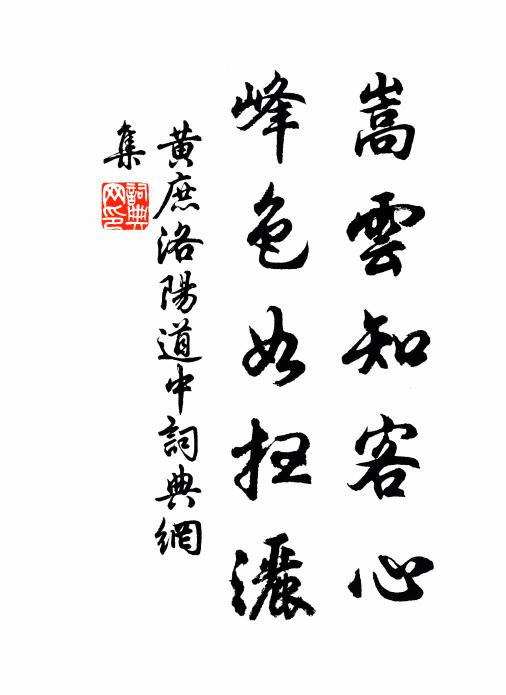 嵩雲知客心
峰色如掃灑
黃庶洛陽道中詞典網
集
詞典
网印